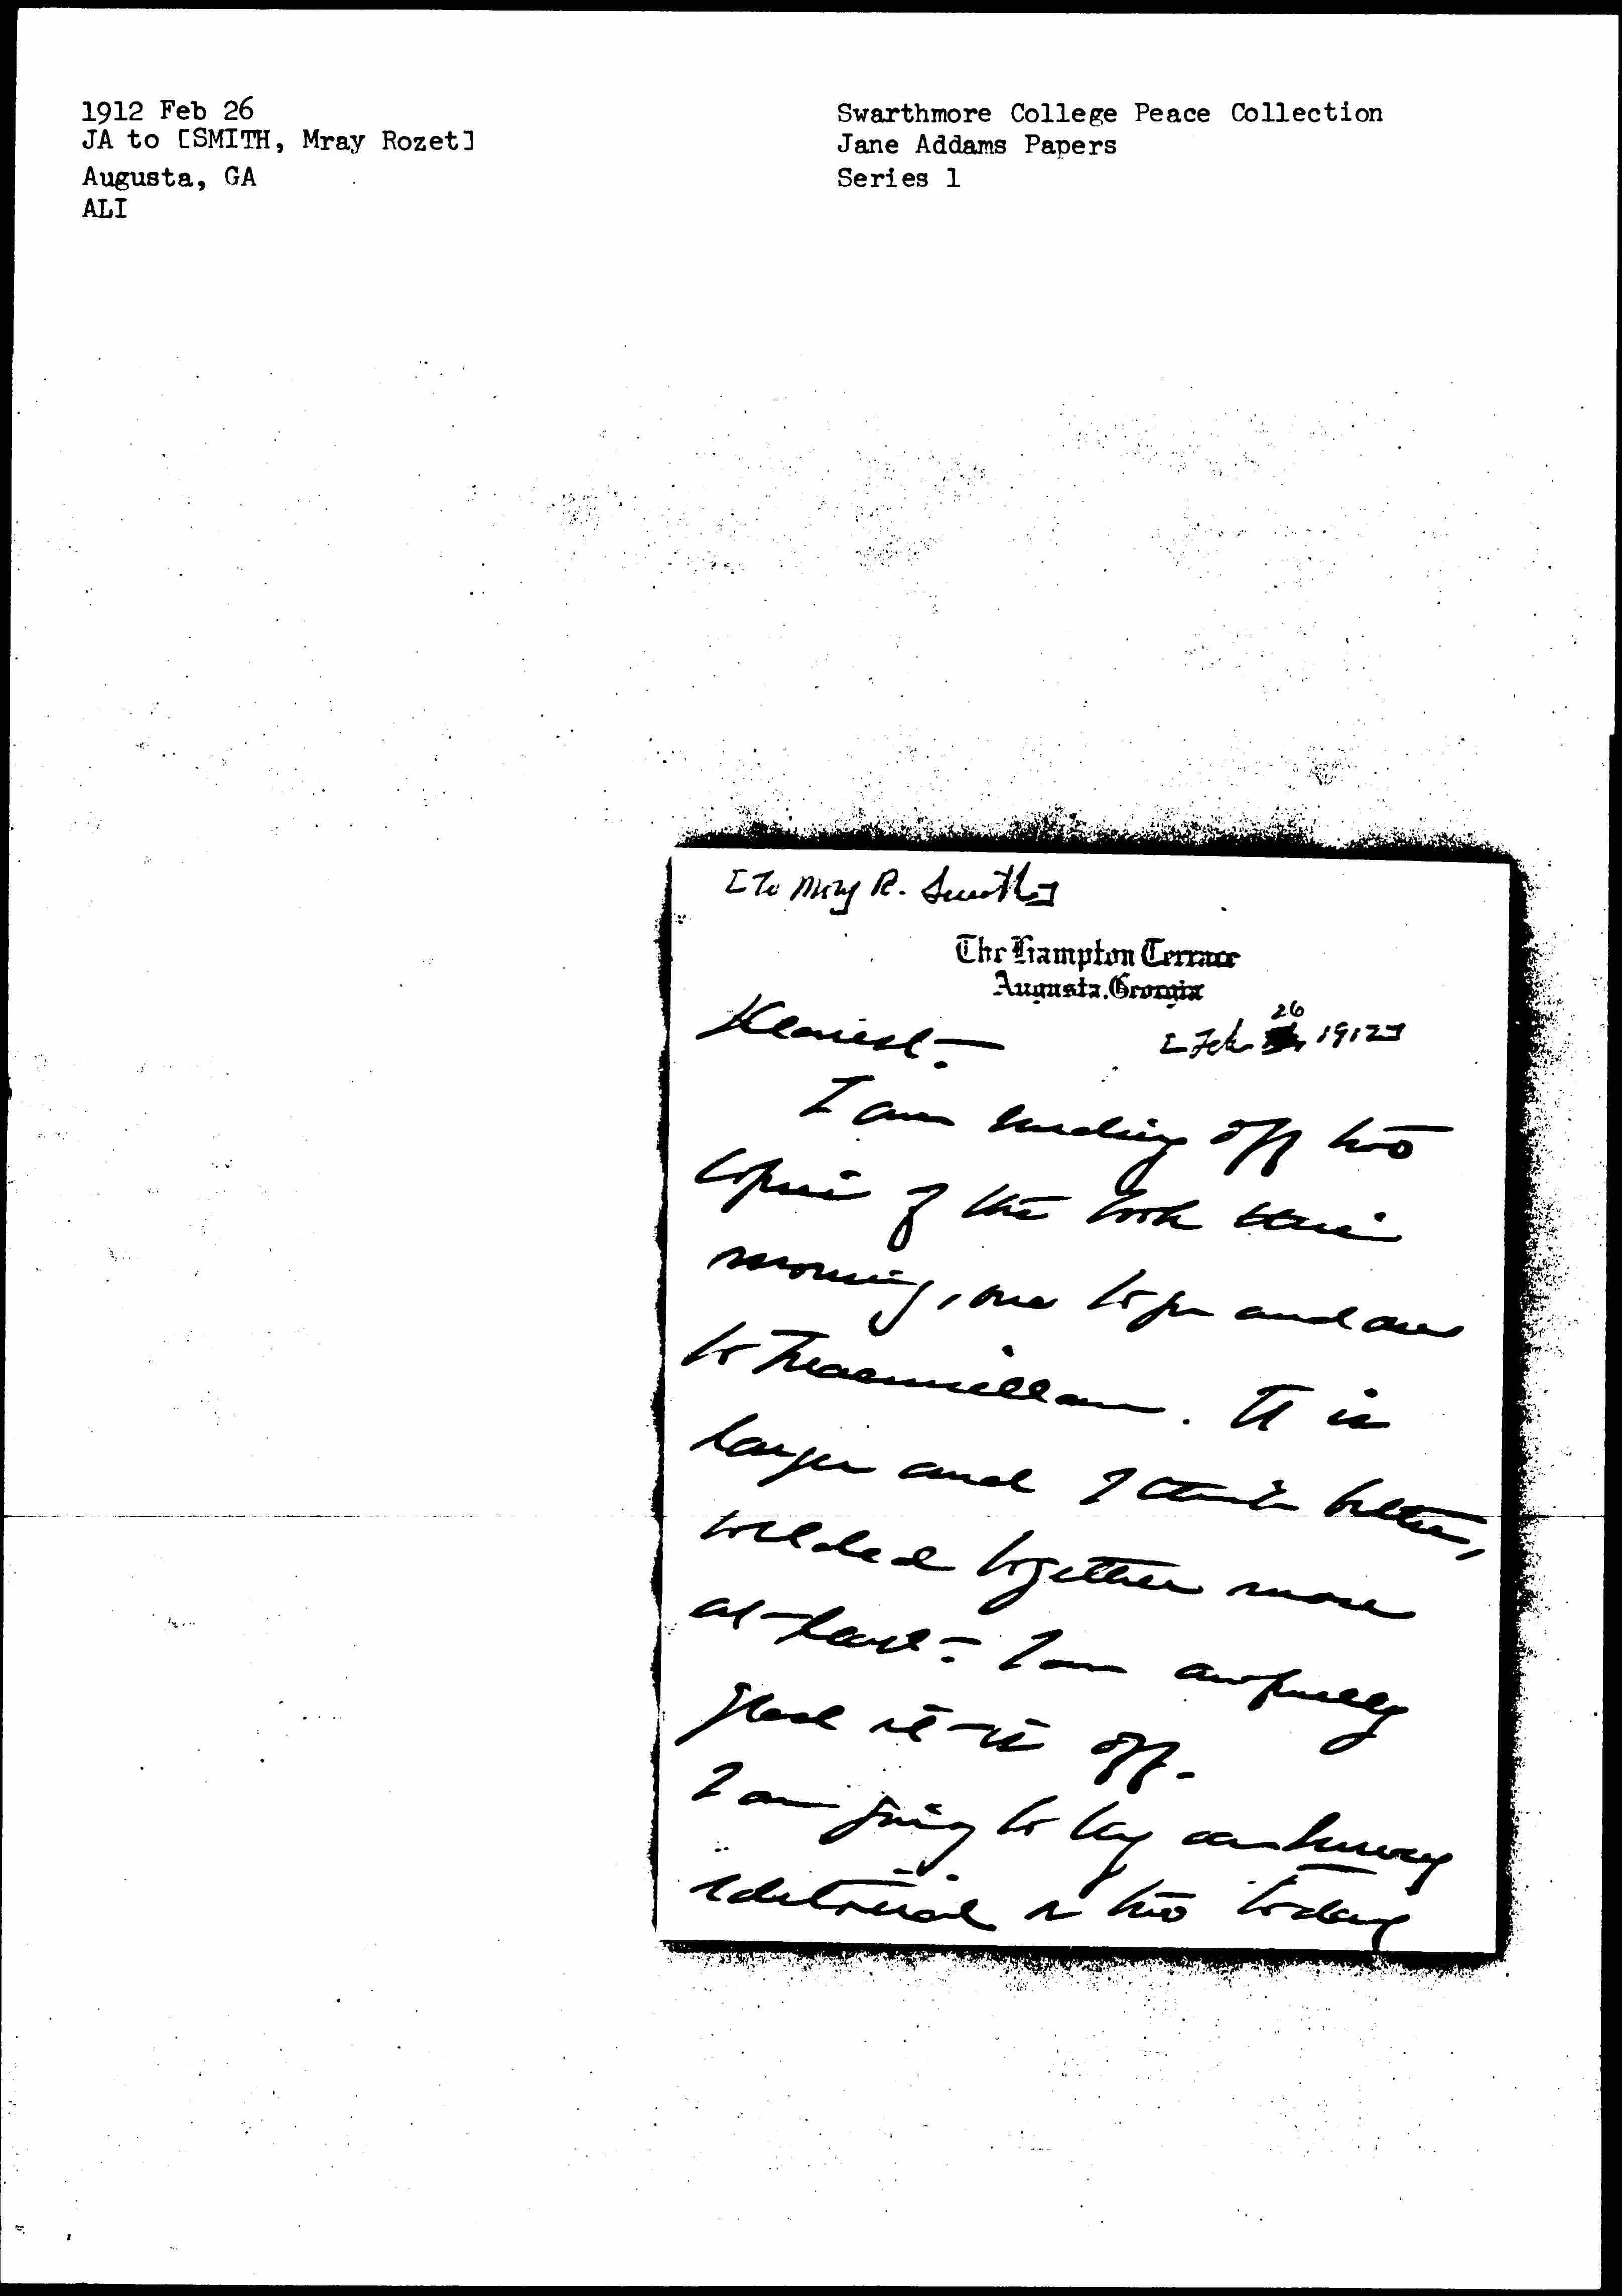 1912 Feb 26
JA to [SMITH, Mray Rozet]
Augusta, GA
ALI
Swarthmore College Peace Collection
Jane Addams Papers
Series 1
[To Mary R. Smith]
The Hampton Terrace
Augusta, Georgia
Dearest -
[Feb 26 1912]
I am sending off two
copies of the book this
morning, one to you and one
to Macmillan. It is
larger and I think better,
welded together more
at least - I am awfully
glad it is off.
I am going to try an
editorial or two today